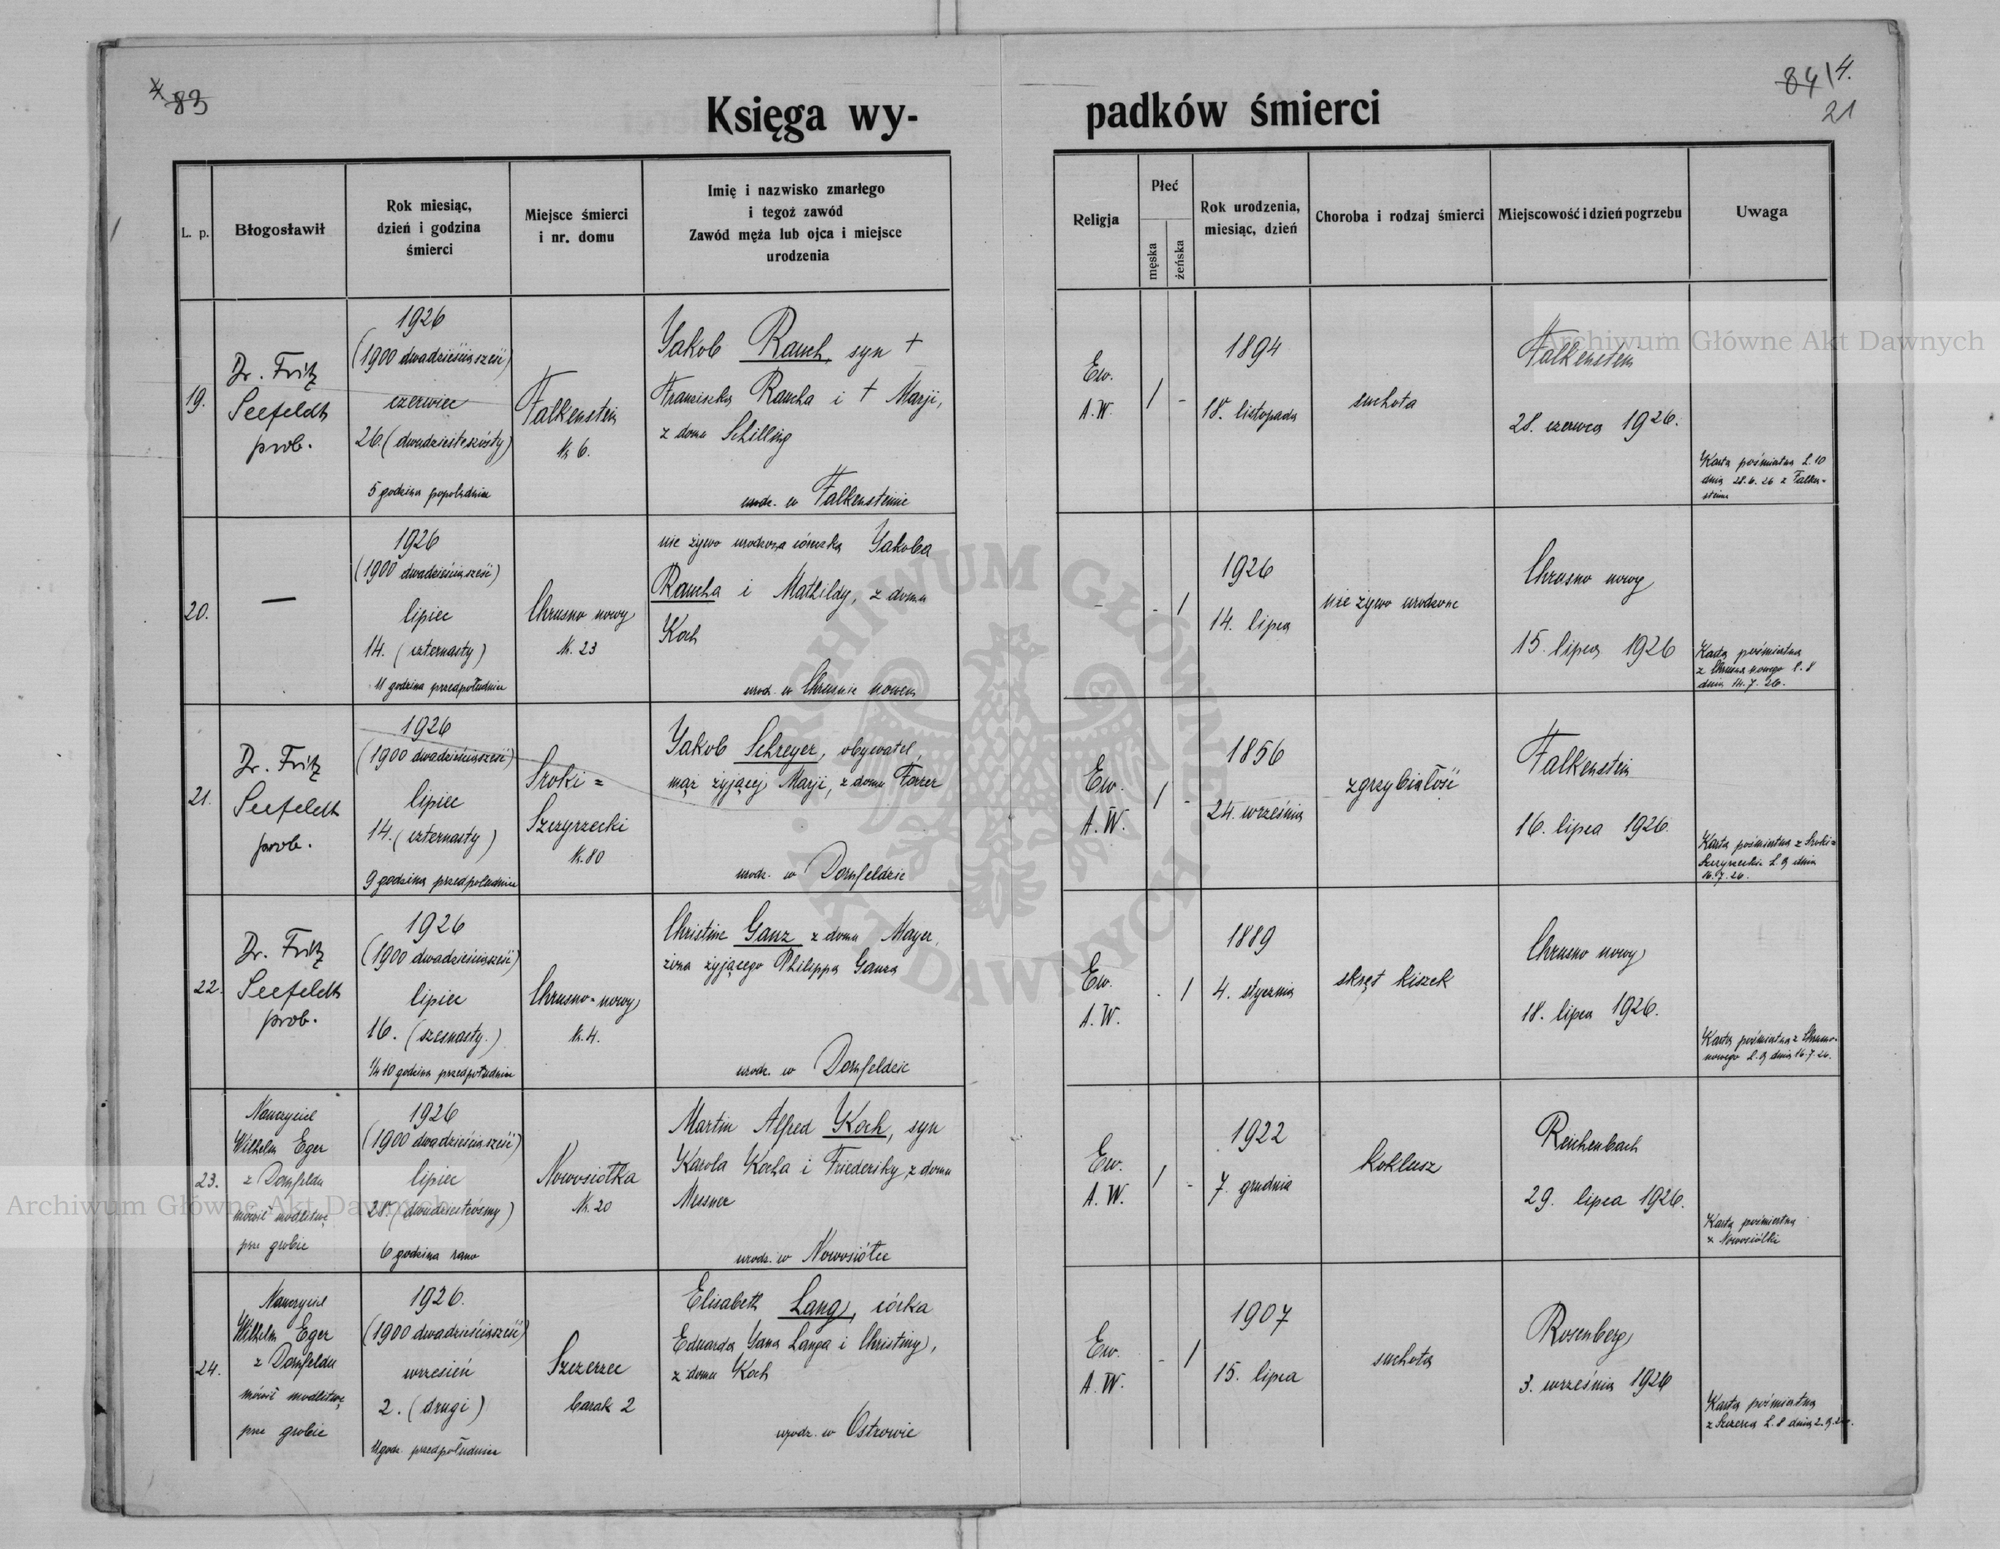 83
84 14.
21
Księga wy-
padków śmierci
L. p.
Błogosławił
Rok miesiąc,
dzień i godzina
śmierci
Miejsce śmierci
i nr. domu
Imię i nazwisko zmarłego
i tegoż zawód
Zawód męża lub ojca i miejsce
urodzenia
Religja
Płeć
męska
żeńska
Rok urodzenia,
miesiąc, dzień
Choroba i rodzaj śmierci
Miejscowość i dzień pogrzebu
Uwaga
19.
Dr. Fritz
Seefeldt
prob.
1926
(1900 dwadzieściasześć)
czerwiec
26. (dwudziesteszósty)
5 godzina popołudniu
Falkenstein
Nr. 6.
Jakob Rauch, syn +
Franciszka Raucha i + Marji,
z domu Schilling
urodz. w Falkensteinie
Ew.
A.W.
1
-
1894
18. listopada
suchota
Falkenstein
28. czerwca 1926.
Karta pośmiertna L. 10
dnia 28.6.26 z Falken-
steina
20.
—
1926
(1900 dwadzieściasześć)
lipiec
14. (czternasty)
11 godzina przedpołudniu
Chrusno nowy
Nr. 23
nie żywo urodzona córeczka Jakoba
Raucha i Mathildy, z domu
Koch
urodz. w Chrusnie nowem
-
-
1
1926
14. lipca
nie żywo urodzone
Chrusno nowy
15. lipca 1926
Karta pośmiertna
z Chrusna nowego L. 8
dnia 14.7.26.
21.
Dr. Fritz
Seefeldt
prob.
1926
(1900 dwadzieściasześć)
lipiec
14. (czternasty)
9 godzina przedpołudniu
Sroki=
Szczyrzecki
Nr. 80
Jakob Schreyer, obywatel,
mąż żyjącej Marji, z domu Forrer
urodz. w Dornfeldzie
Ew.
A.W.
1
-
1856
24. września
zgrzybiałość
Falkenstein
16. lipca 1926.
Karta pośmiertna z Sroki=
Szczyrzeckie L. 9 dnia
16.7.26.
22.
Dr. Fritz
Seefeldt
prob.
1926
(1900 dwadzieściasześć)
lipiec
16. (szesnasty.)
1/2 10 godzina przedpołudniu
Chrusno-nowy
Nr. 4.
Christine Ganz z domu Mayer,
żona żyjącego Philippa Ganza
urodz. w Dornfeldzie
Ew.
A.W.
.
1
1889
4. stycznia
skręt kiszek
Chrusno nowy
18. lipca 1926.
Karta pośmiertna z Chrusno-
nowego L. 9 dnia 16.7.26.
23.
Nauczyciel
Wilhelm Eger
z Dornfeldu
mówił modlitwę
prze grobie
1926
(1900 dwadzieściasześć)
lipiec
28. (dwudziestyósmy)
6 godzina rano
Nowosiółka
Nr. 20
Martin Alfred Koch, syn
Karola Kocha i Friederiky, z domu
Messner
urodz. w Nowosiółce
Ew.
A.W.
1
-
1922
7. grudnia
koklusz
Reichenbach
29. lipca 1926.
Karta pośmiertna
z Nowosiółki
24.
Nauczyciel
Wilhelm Eger
z Dornfeldu
mówił modlitwę
prze grobie
1926.
(1900 dwadzieściasześć)
wrzesień
2. (drugi)
11 godz. przedpołudniu
Szczerzec
barak 2
Elisabeth Lang, córka
Eduarda Jana Langa i Christiny,
z domu Koch
urodz. w Ostrowie
Ew.
A.W.
-
1
1907
15. lipca
suchota
Rosenberg
3. września 1926
Karta pośmiertna
z Szczerca L. 8 dnia 2.9.26.
Archiwum Główne Akt Dawnych
Archiwum Główne Akt Dawnych
ARCHIWUM GŁÓWNE
AKT DAWNYCH